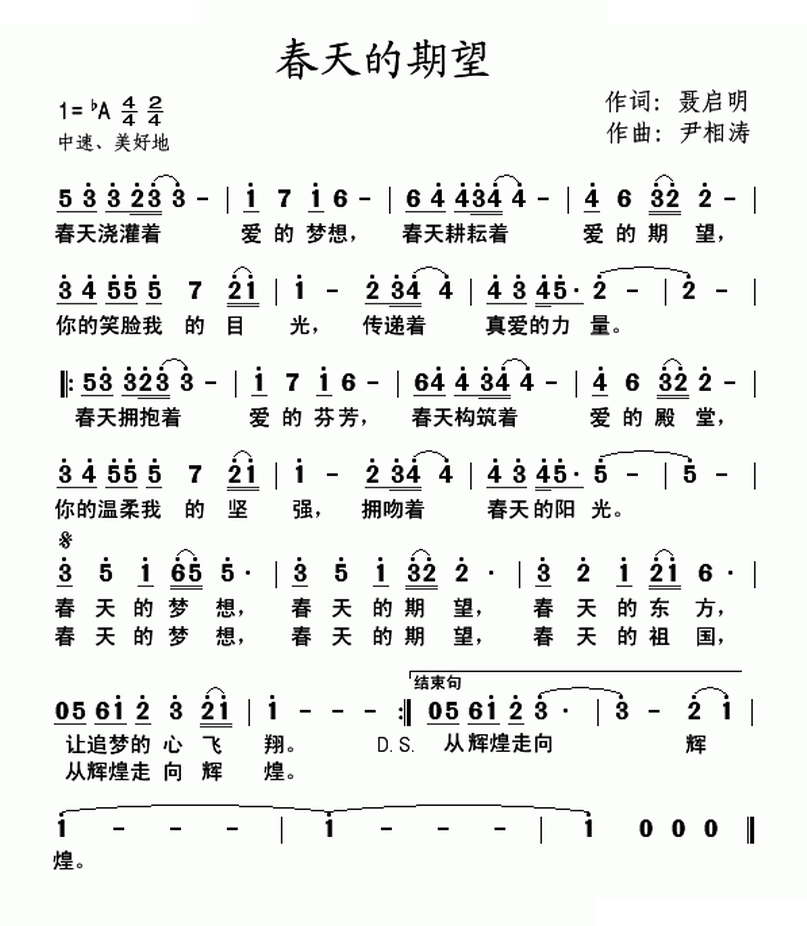 春天的期望
1=♭A 4/4 2/4
作词：聂启明
中速、美好地
作曲：尹相涛
5 3 3 23 3 - | 1 7 1 6 - | 6 4 4 34 4 - | 4 6 32 2 - |
春天浇灌着 爱的梦想， 春天耕耘着 爱的期望，
3 4 55 5 7 21 | 1 - 2 34 4 | 4 3 45· 2 - | 2 - |
你的笑脸我的目光， 传递着 真爱的力量。
‖: 53 323 3 - | 1 7 1 6 - | 64 4 34 4 - | 4 6 32 2 - |
春天拥抱着 爱的芬芳， 春天构筑着 爱的殿堂，
3 4 55 5 7 21 | 1 - 2 34 4 | 4 3 45· 5 - | 5 - |
你的温柔我的坚强， 拥吻着 春天的阳光。
3 5 1 65 5· | 3 5 1 32 2· | 3 2 1 21 6· |
春天的梦想， 春天的期望， 春天的东方，
春天的梦想， 春天的期望， 春天的祖国，
结束句
05 61 2 3 21 | 1 - - - :‖ 05 61 2 3· | 3 - 2 1 |
让追梦的心飞翔。 D.S. 从辉煌走向 辉
从辉煌走向辉煌。
1 - - - | 1 - - - | 1 0 0 0 ‖
煌。